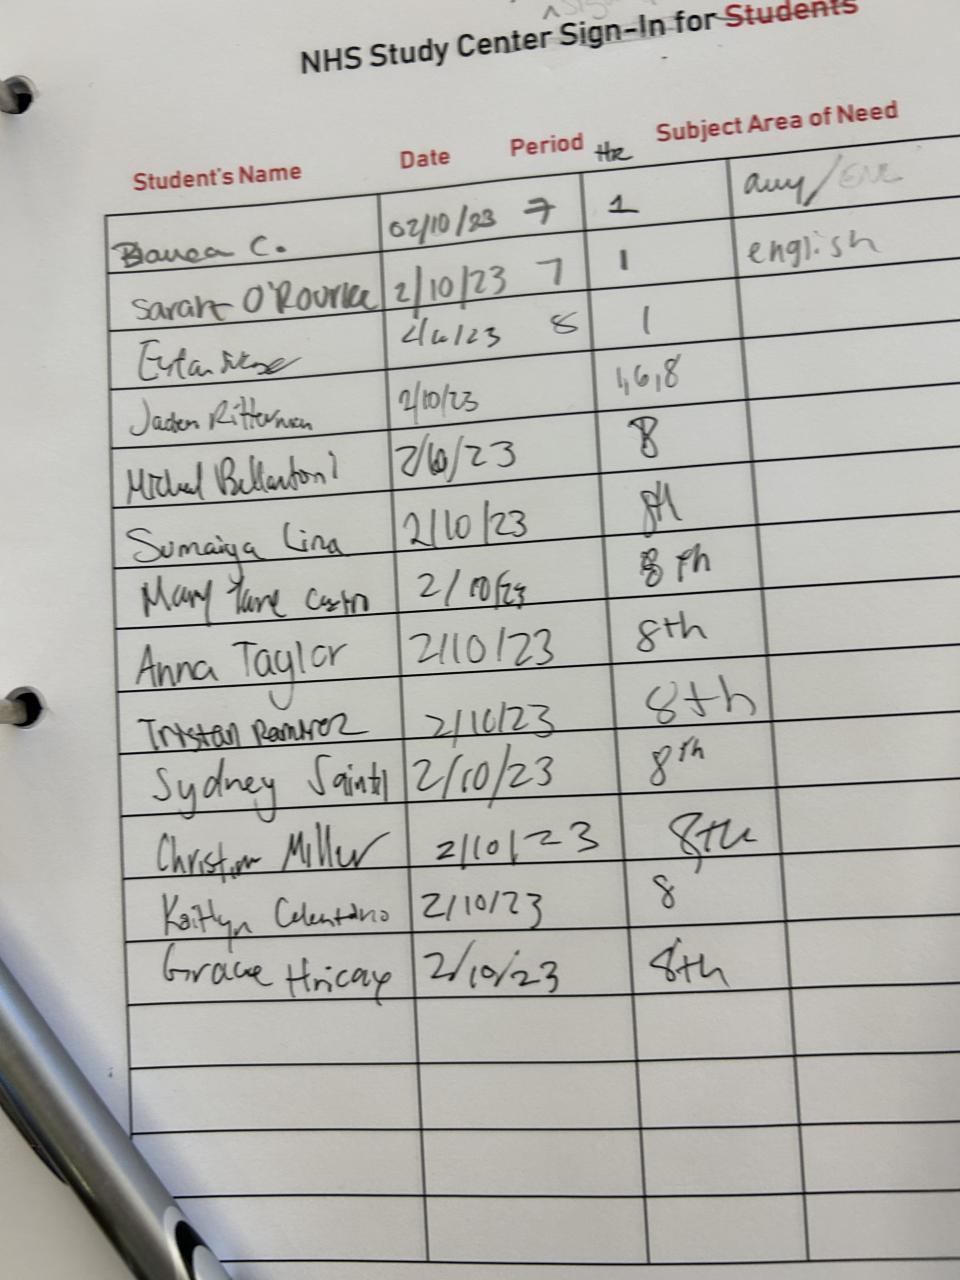 NHS Study Center Sign-In for Students
Student's Name Date Period Hr Subject Area of Need
C. 02/10/23 7 1 any/
Sarah O'Rourke 2/10/23 7 1 english
23 8 1
Jaden 2/10/23 1,6,8
Michael Bellantoni 2/10/23 8
Sumaiya Lina 2/10/23 8th
Mary Jane Castro 2/10/23 8th
Anna Taylor 2/10/23 8th
Tristan Ramirez 2/10/23 8th
Sydney 2/10/23 8th
Christian Miller 2/10/23 8th
Kaitlyn Celentano 2/10/23 8
Grace Hricay 2/10/23 8th